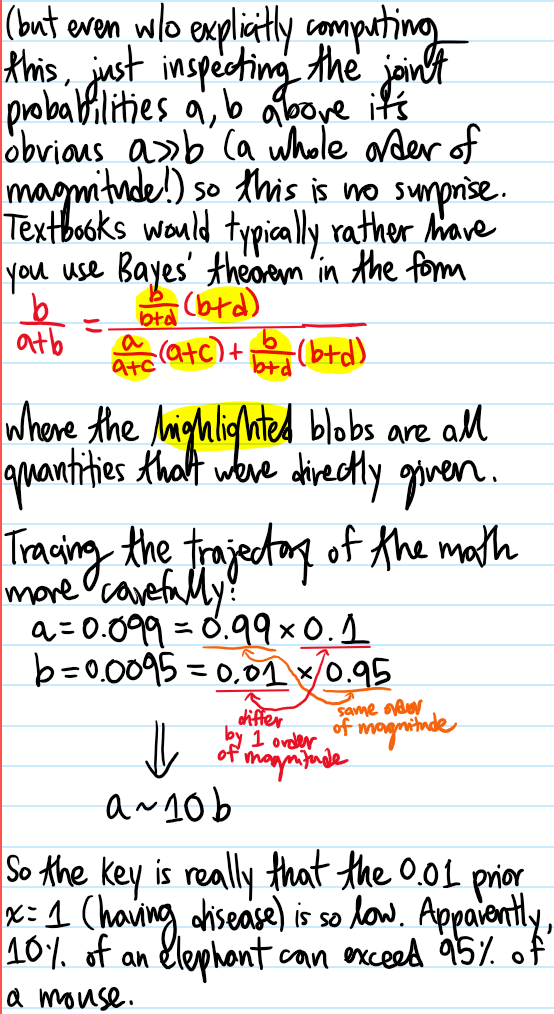 (but even w/o explicitly computing
this, just inspecting the joint
probabilities a, b above it's
obvious a≫b (a whole order of
magnitude!) so this is no surprise.
Textbooks would typically rather have
you use Bayes' theorem in the form
b/(a+b) = (b/(b+d) (b+d)) / (a/(a+c) (a+c) + b/(b+d) (b+d))
where the highlighted blobs are all
quantities that were directly given.
Tracing the trajectory of the math
more carefully:
a = 0.099 = 0.99 × 0.1
b = 0.0095 = 0.01 × 0.95
differ
by 1 order
of magnitude
same order
of magnitude
⇓
a ~ 10 b
So the key is really that the 0.01 prior
x = 1 (having disease) is so low. Apparently,
10% of an elephant can exceed 95% of
a mouse.